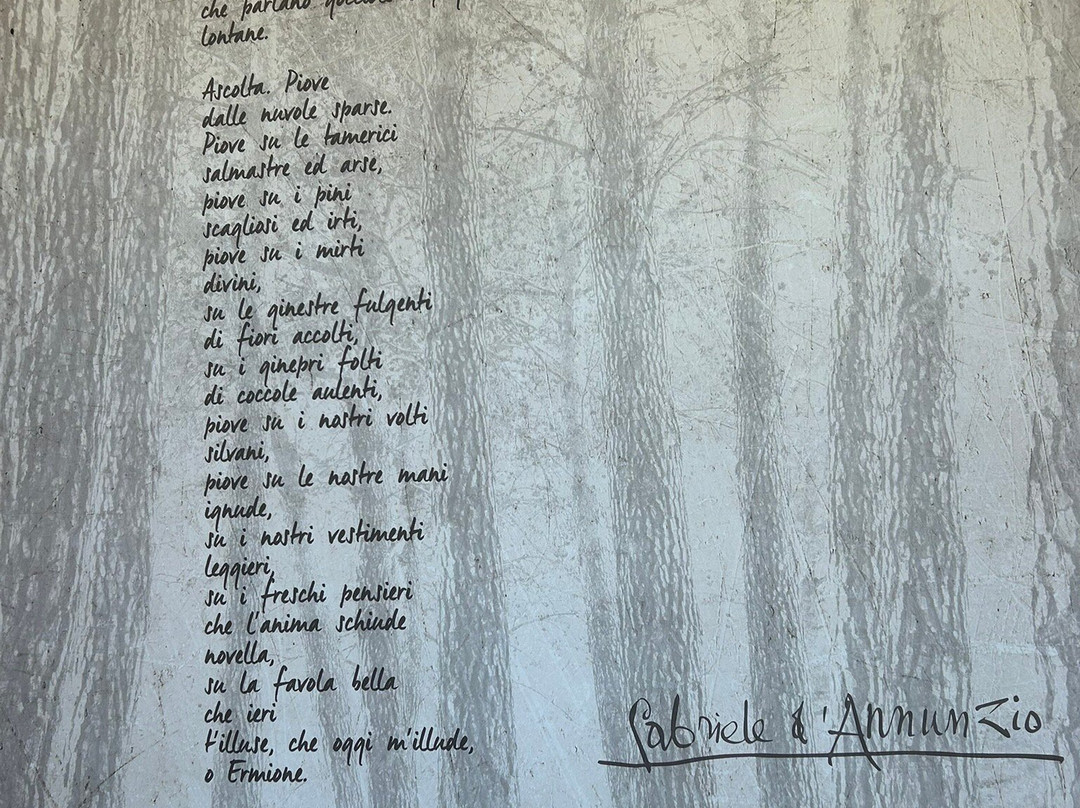 che parlano
lontane.
Ascolta. Piove
dalle nuvole sparse.
Piove su le tamerici
salmastre ed arse,
piove su i pini
scagliosi ed irti,
piove su i mirti
divini,
su le ginestre fulgenti
di fiori accolti,
su i ginepri folti
di coccole aulenti,
piove su i nostri volti
silvani,
piove su le nostre mani
ignude,
su i nostri vestimenti
leggieri,
su i freschi pensieri
che l'anima schiude
novella,
su la favola bella
che ieri
t'illuse, che oggi m'illude,
o Ermione.
Gabriele d'Annunzio